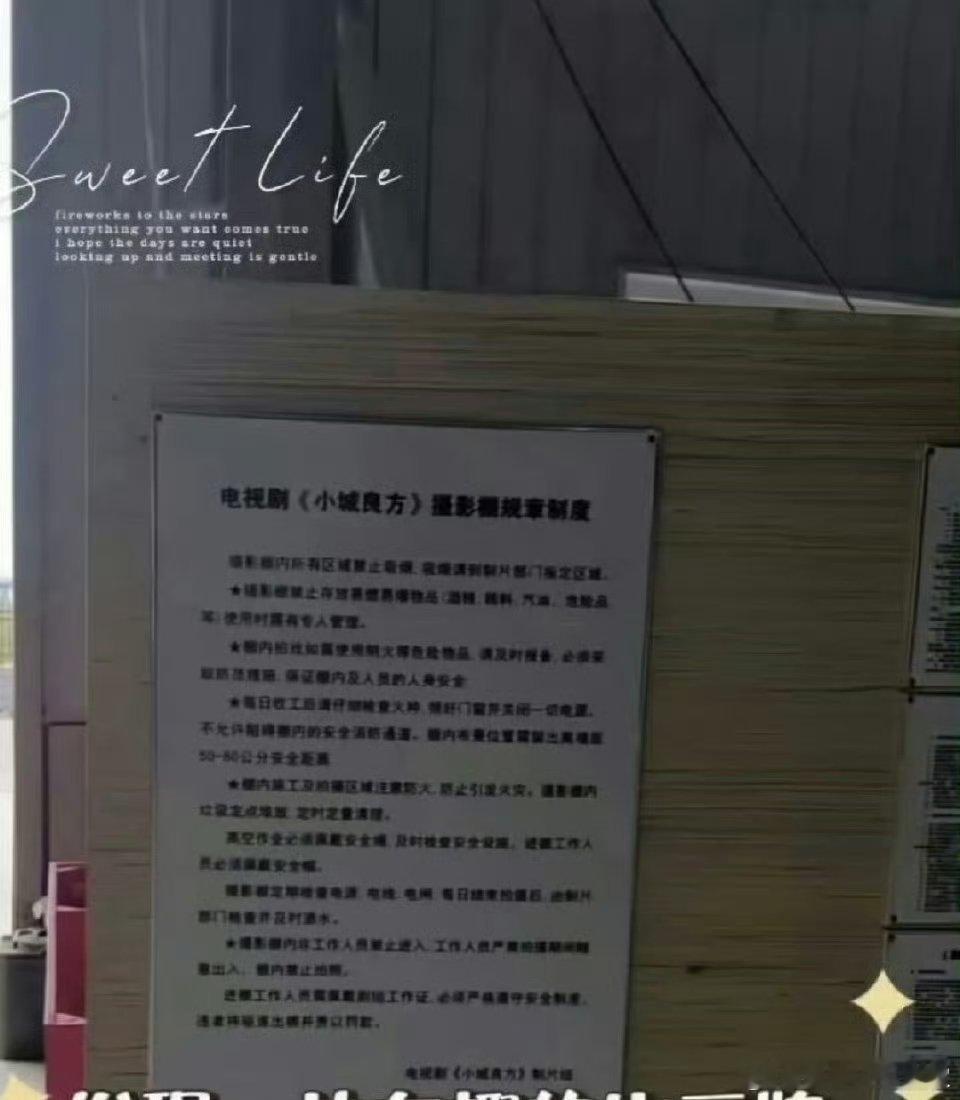 Sweet Life
fireworks to the stars
everything you want comes true
i hope the days are quiet
looking up and meeting is gentle
电视剧《小城良方》摄影棚规章制度
摄影棚内所有区域禁止吸烟,吸烟请到制片部门指定区域。
★摄影棚禁止存放易燃易爆物品(酒精、燃料、汽油、危险品
等)使用时需有专人管理。
★棚内拍戏如需使用明火等危险物品,请及时报备,必须采
取防范措施,保证棚内及人员的人身安全
★每日收工后请仔细检查火种,锁好门窗并关闭一切电源。
不允许阻碍棚内的安全消防通道。棚内布景位置需留出离墙面
50-60公分安全距离
★棚内施工及拍摄区域注意防火,防止引发火灾。摄影棚内
垃圾定点堆放,定时定量清理。
高空作业必须佩戴安全绳,及时检查安全设施。进棚工作人
员必须佩戴安全帽。
摄影棚定期检查电源、电线、电闸,每日结束拍摄后,由制片
部门检查并及时洒水。
★摄影棚内非工作人员禁止进入,工作人员严禁拍摄期间随
意出入。棚内禁止拍照。
进棚工作人员需佩戴剧组工作证,必须严格遵守安全制度,
违者将驱逐出棚并责以罚款。
电视剧《小城良方》制片组